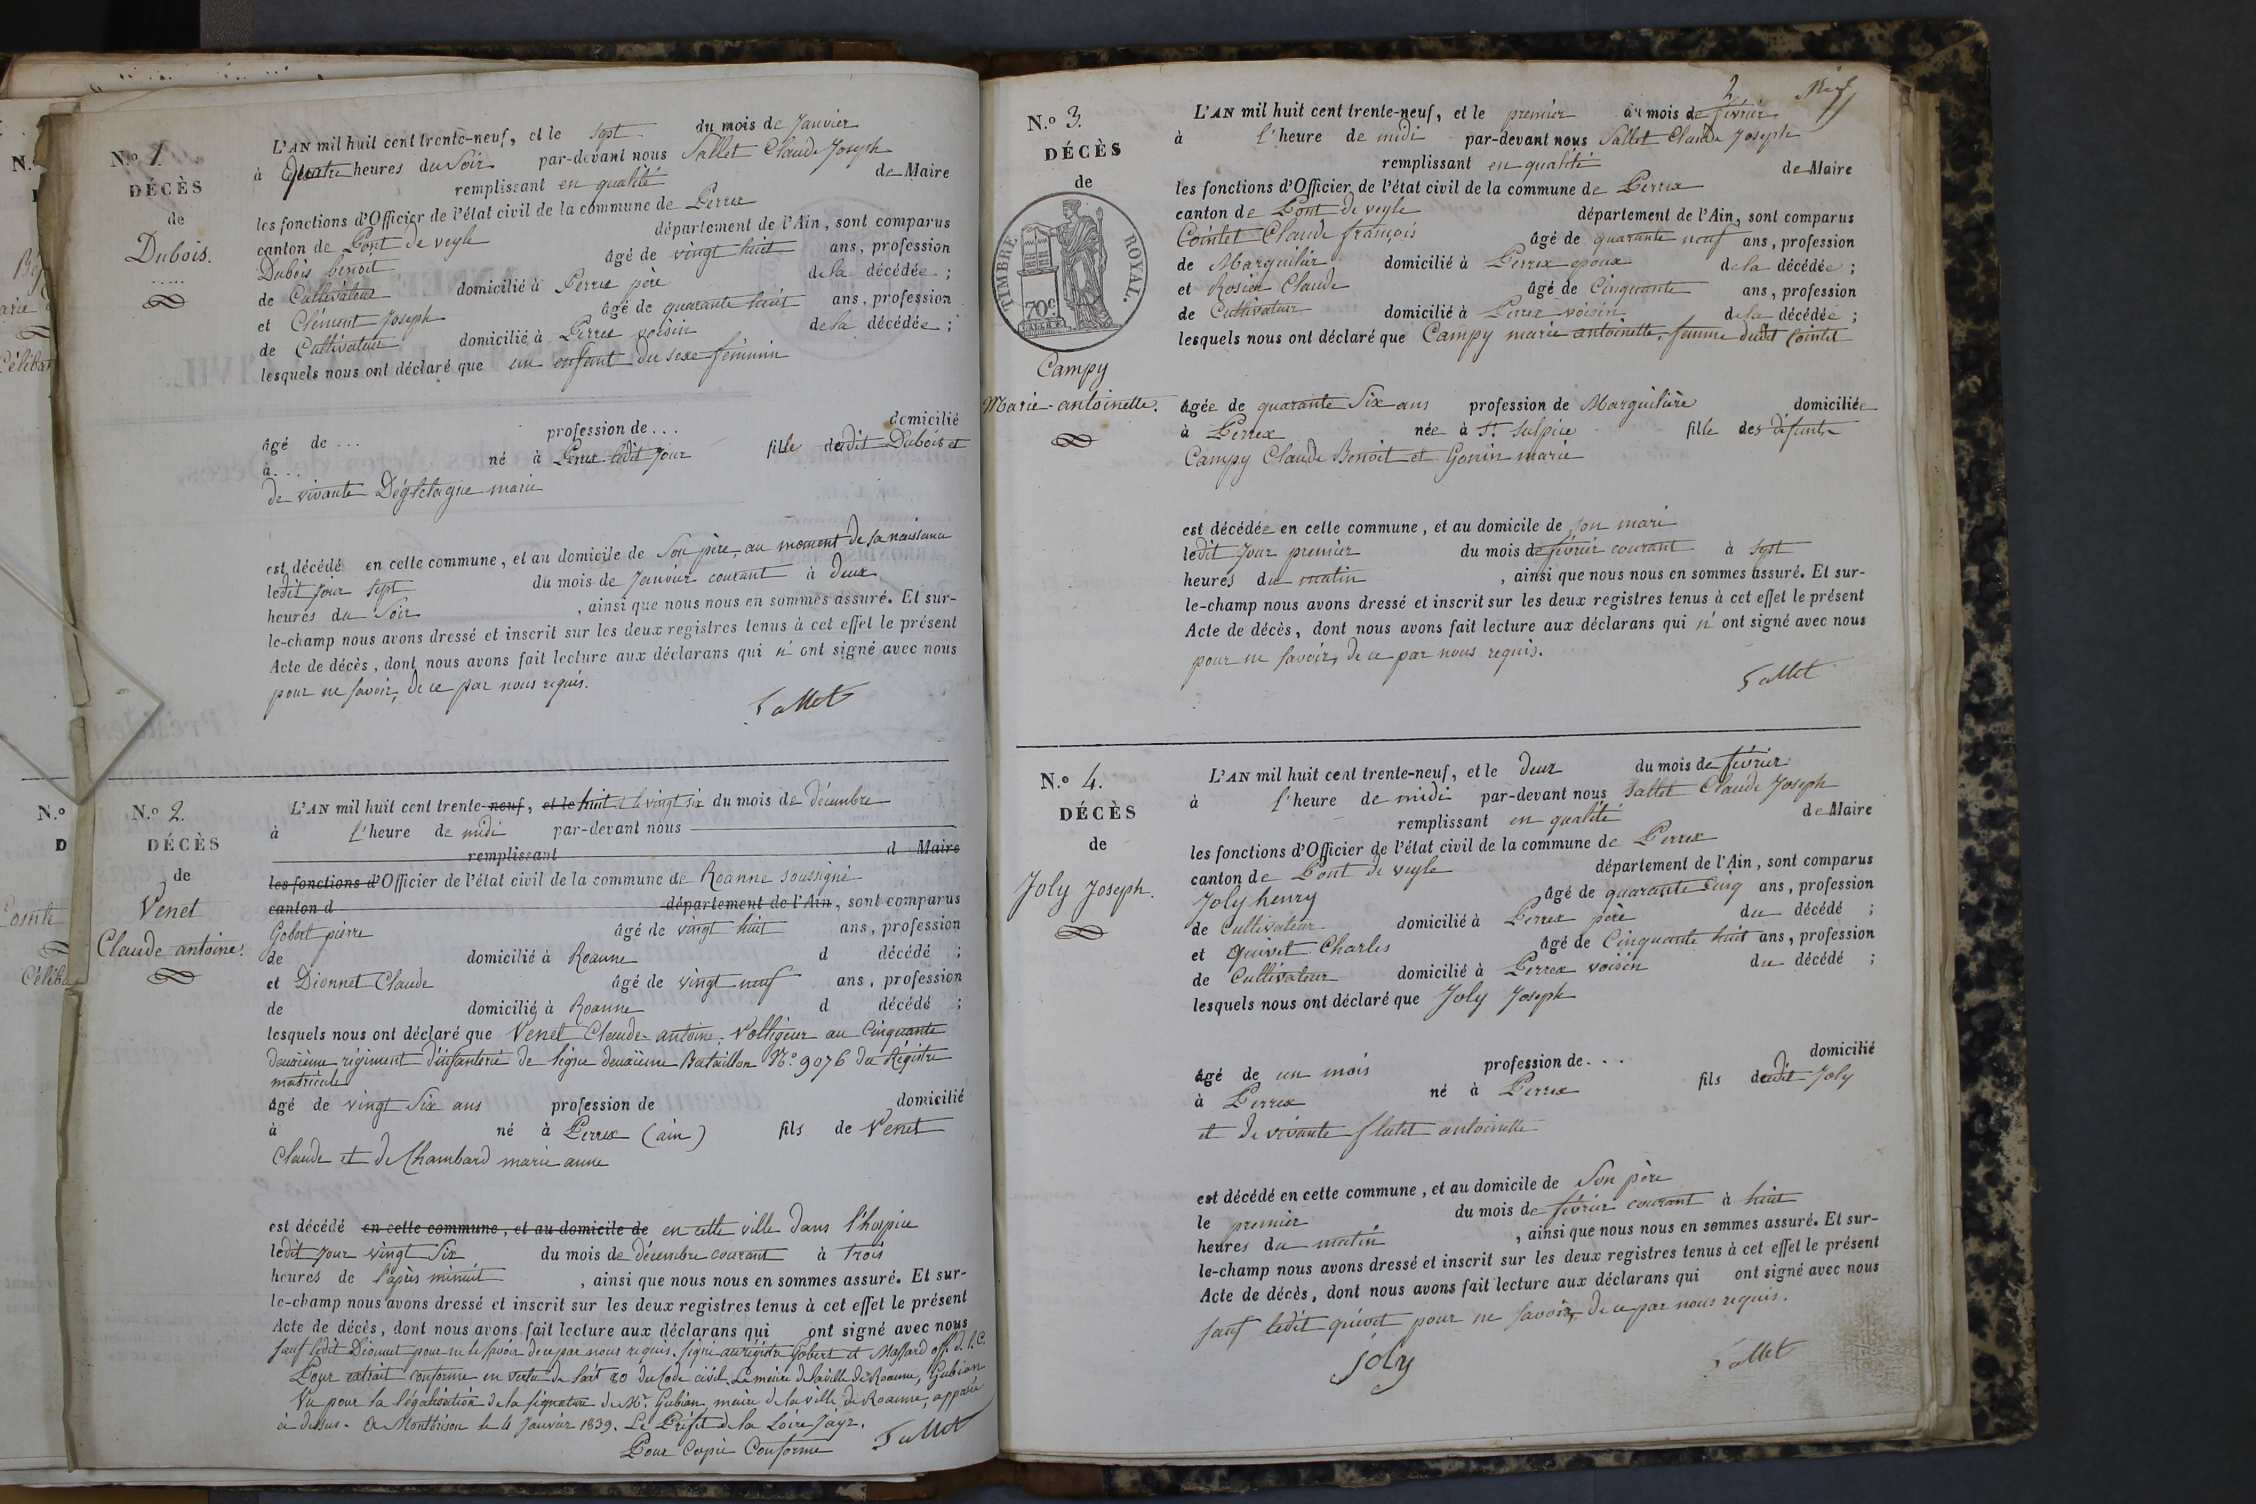 N.º 1.
DÉCÈS
de
Dubois.
L'AN mil huit cent trente-neuf, et le sept du mois de Janvier
à quatre heures du Soir par-devant nous Sallet Claude Joseph
remplissant en qualité de Maire
les fonctions d'Officier de l'état civil de la commune de Perrex
canton de Pont de veyle département de l'Ain, sont comparus
Dubois benoit âgé de vingt huit ans, profession
de Cultivateur domicilié à Perrex père de la décédée ;
et Clément Joseph âgé de quarante huit ans, profession
de Cultivateur domicilié à Perrex voisin de la décédée ;
lesquels nous ont déclaré que un enfant du sexe féminin
âgé de ... profession de ... domicilié
à ... né à Perrex ledit Jour fille dudit Dubois et
de vivante marie
est décédé en cette commune, et au domicile de Son père, au moment de sa naissance
ledit jour sept du mois de Janvier courant à deux
heures du Soir , ainsi que nous nous en sommes assuré. Et sur-
le-champ nous avons dressé et inscrit sur les deux registres tenus à cet effet le présent
Acte de décès, dont nous avons fait lecture aux déclarans qui n' ont signé avec nous
pour ne savoir, de ce par nous requis.
Sallet
N.º 2.
DÉCÈS
de
Venet
Claude antoine.
L'AN mil huit cent trente-neuf, et le huit et le vingt six du mois de décembre
à l'heure de midi par-devant nous
remplissant d Maire
les fonctions d'Officier de l'état civil de la commune de Roanne soussigné
canton d département de l'Ain, sont comparus
Gobert pierre âgé de vingt huit ans, profession
de domicilié à Roanne d décédé ;
et Dionnet Claude âgé de vingt neuf ans, profession
de domicilié à Roanne d décédé ;
lesquels nous ont déclaré que Venet Claude antoine, Voltigeur au Cinquante
deuxième régiment d'infanterie de ligne deuxième Bataillon N.º 9076 du Régistre
matricule
âgé de vingt Six ans profession de domicilié
à né à Perrex (ain) fils de Venet
Claude et de Chambard marie anne
est décédé en cette commune, et au domicile de en cette ville dans l'hospice
ledit jour vingt Six du mois de décembre courant à trois
heures de l'après minuit , ainsi que nous nous en sommes assuré. Et sur-
le-champ nous avons dressé et inscrit sur les deux registres tenus à cet effet le présent
Acte de décès, dont nous avons fait lecture aux déclarans qui ont signé avec nous
sauf ledit Dionnet pour ne le savoir de ce par nous requis. signé au registre Gobert et Massard off. d. l. C.
Pour extrait conforme en vertu de l'art 80 du Code civil. Le maire de la ville de Roanne, Gubian
Vu pour la légalisation de la signature de Mr. Gubian, maire de la ville de Roanne, apposée
ci dessus. à Montbrison le 4 Janvier 1839. Le Préfet de la Loire Jayr.
Pour Copie Conforme Sallet
2
N.º 3.
DÉCÈS
de
TIMBRE ROYAL.
70c.
Campy
Marie-antoinette.
L'AN mil huit cent trente-neuf, et le premier du mois de février
à l'heure de midi par-devant nous Sallet Claude Joseph
remplissant en qualité de Maire
les fonctions d'Officier de l'état civil de la commune de Perrex
canton de Pont de veyle département de l'Ain, sont comparus
Cointet Claude françois âgé de quarante neuf ans, profession
de Marguilier domicilié à Perrex époux de la décédée ;
et Rosier Claude âgé de Cinquante ans, profession
de Cultivateur domicilié à Perrex voisin de la décédée ;
lesquels nous ont déclaré que Campy marie antoinette, femme dudit Cointet
âgée de quarante Six ans profession de Marguilière domiciliée
à Perrex née à St. Sulpice fille des défunts
Campy Claude Benoit et Gonin marie
est décédée en cette commune, et au domicile de son mari
ledit jour premier du mois de février courant à sept
heures du matin , ainsi que nous nous en sommes assuré. Et sur-
le-champ nous avons dressé et inscrit sur les deux registres tenus à cet effet le présent
Acte de décès, dont nous avons fait lecture aux déclarans qui n' ont signé avec nous
pour ne savoir, de ce par nous requis.
Sallet
N.º 4.
DÉCÈS
de
Joly Joseph.
L'AN mil huit cent trente-neuf, et le deux du mois de février
à l'heure de midi par-devant nous Sallet Claude Joseph
remplissant en qualité de Maire
les fonctions d'Officier de l'état civil de la commune de Perrex
canton de Pont de veyle département de l'Ain, sont comparus
Joly henry âgé de quarante Cinq ans, profession
de Cultivateur domicilié à Perrex père du décédé ;
et Quivet Charles âgé de Cinquante huit ans, profession
de Cultivateur domicilié à Perrex voisin du décédé ;
lesquels nous ont déclaré que Joly Joseph
âgé de un mois profession de ... domicilié
à Perrex né à Perrex fils dudit Joly
et de vivante flutet antoinette
est décédé en cette commune, et au domicile de Son père
le premier du mois de février courant à huit
heures du matin , ainsi que nous nous en sommes assuré. Et sur-
le-champ nous avons dressé et inscrit sur les deux registres tenus à cet effet le présent
Acte de décès, dont nous avons fait lecture aux déclarans qui ont signé avec nous
sauf ledit quivet pour ne savoir, de ce par nous requis.
Joly Sallet